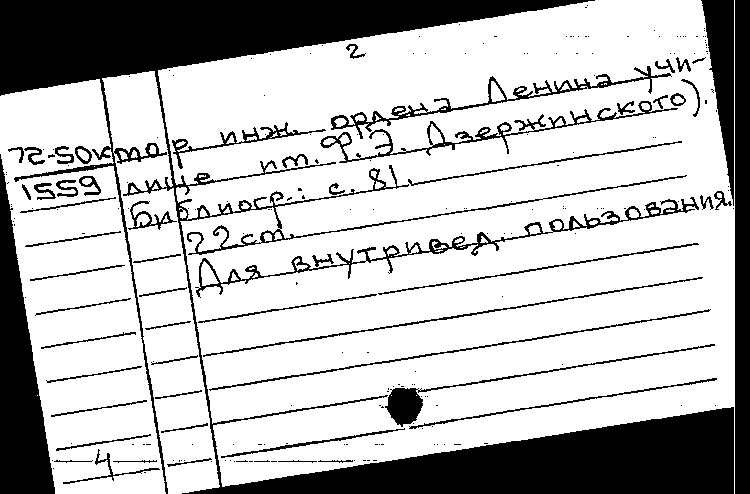 2
72-50к мор. инж. ордена Ленина учи-
1559 лище им. Ф.Э. Дзержинского).
Библиогр.: с. 81.
22 см.
Для внутривед. пользования.
4